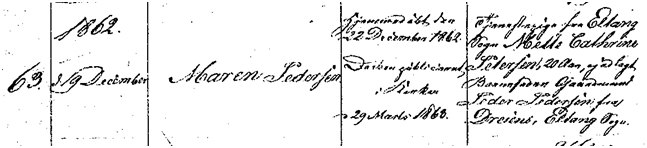 1862.
63. d 19 December
Maren Pedersen
Hjemmedøbt den
22 December 1862.
Daaben publiceret
i Kirken
d 29 Marts 1863.
Tjenestepige fra Eltang
Sogn Mette Cathrine
Pedersen, 20 Aar, opgivet
Barnefader Gaardmand
Peder Pedersen fra
Dreiens, Eltang Sogn.